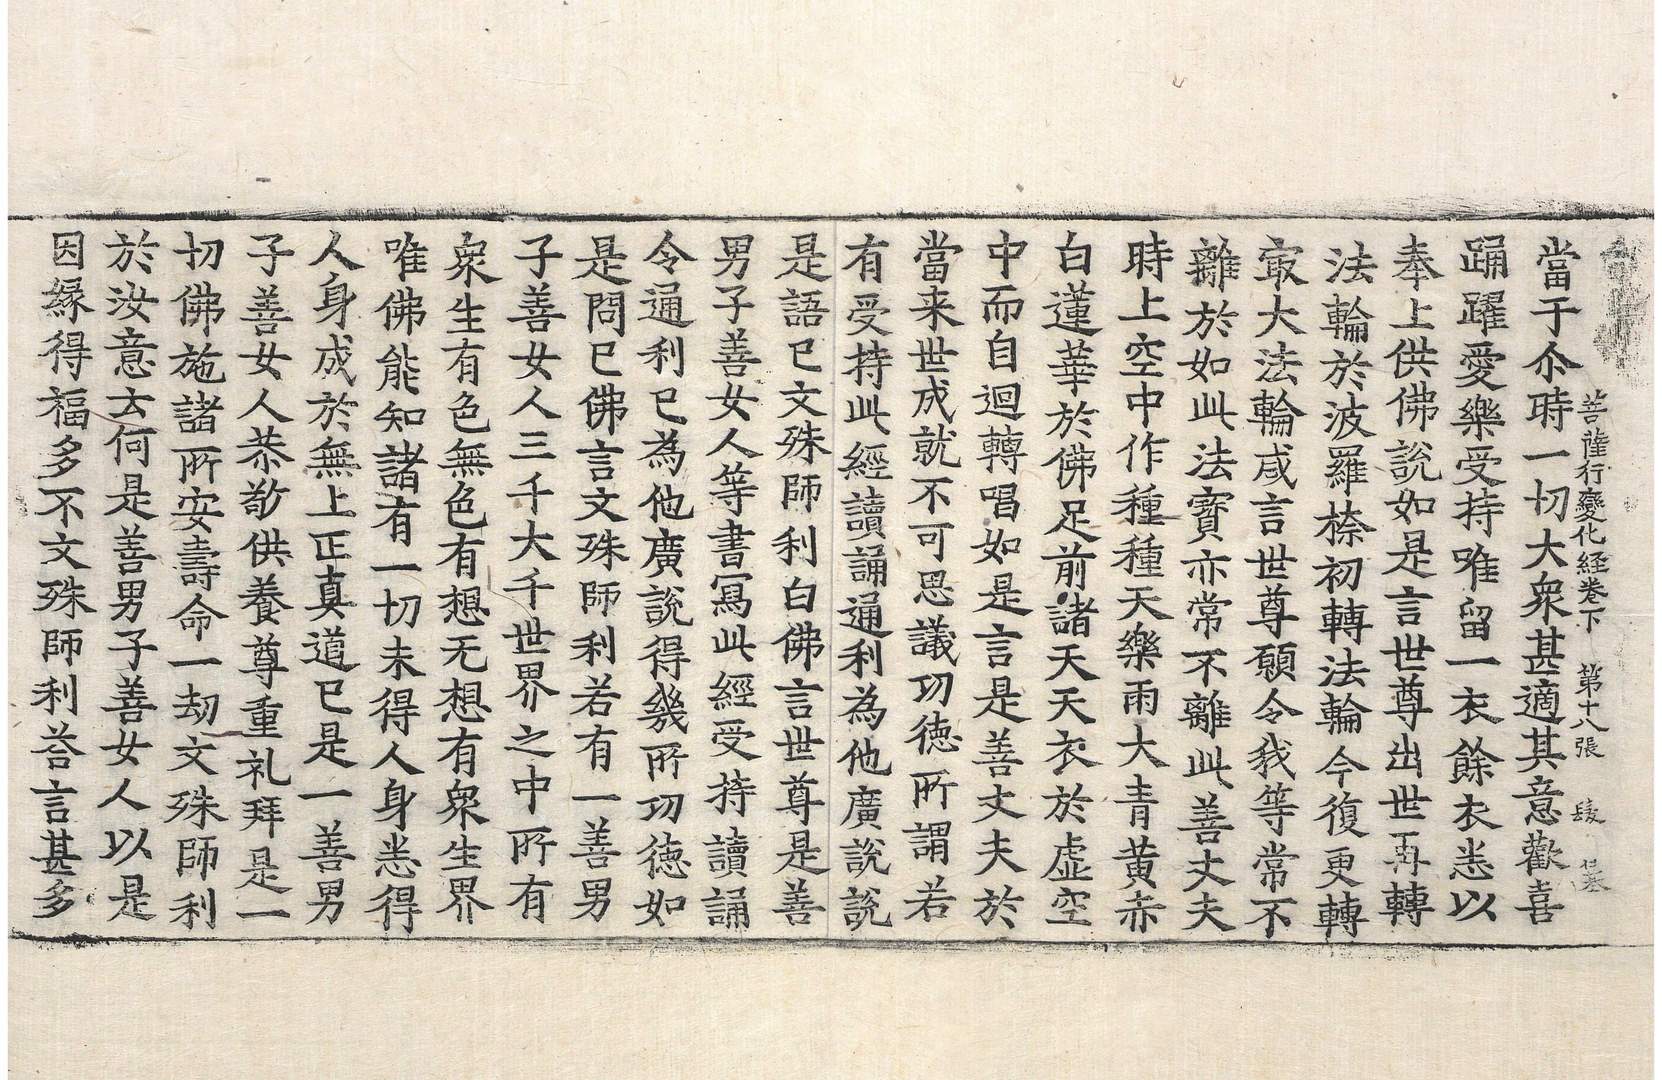 菩薩行變化経卷下 第十八張
當于尒時一切大衆甚適其意歡喜
踊躍愛樂受持唯留一衣餘衣悉以
奉上供佛說如是言世尊出世再轉
法輪於波羅㮈初轉法輪今復更轉
㝡大法輪咸言世尊願令我等常不
離於如此法寶亦常不離此善丈夫
時上空中作種種天樂雨大青黃赤
白蓮華於佛足前諸天天衣於虛空
中而自迴轉唱如是言是善丈夫於
當来世成就不可思議㓛德所謂若
有受持此經讀誦通利為他廣說說
是語已文殊師利白佛言世尊是善
男子善女人等書寫此經受持讀誦
令通利已為他廣說得幾所㓛德如
是問已佛言文殊師利若有一善男
子善女人三千大千世界之中所有
衆生有色無色有想无想有衆生界
唯佛能知諸有一切未得人身悉得
人身成於無上正真道已是一善男
子善女人恭敬供養尊重礼拜是一
切佛施諸所安壽命一劫文殊師利
於汝意云何是善男子善女人以是
因緣得福多不文殊師利荅言甚多